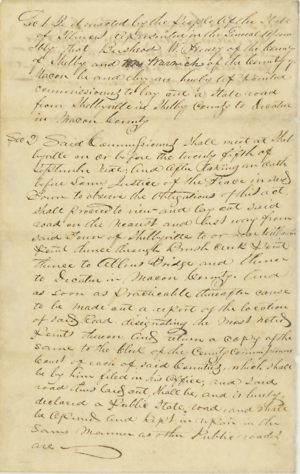 Sec 1 Be it enacted by the People of the State
of Illinois, represented in the General Assem
bly That Bushrod W. Henry of the County
of Shelby and of the County of
Macon be and they are hereby appointed
commissioners to lay out a State road
from Shelbyville in Shelby County to Decatur
in Macon County
Sec 2 Said Commissioners shall meet at Shel
byville on or before the twenty fifth of
September next and after taking an oath
before some Justice of the Peace in said
Town to observe the Obligations of this act
shall proceed to view and lay out said
road on the nearest and best way from
said Town of Shelbyville to or near
Point thence through Brush Creek Point
thence to Allens Bridge and thence
to Decatur in Macon County. And
as soon as Practicable thereafter cause
to be made out a report of the location
of said Road designating the most noted
Points thereon and return a copy of the
same to the Clerk of the County Commissioners
Court of each of said Counties, which shall
be by him filed in his Office, and said
road thus laid out shall be, and is hereby
declared a Public State road and shall
be opened and kept in repair in the
same manner as other Public roads
are